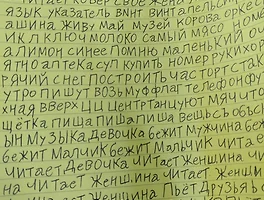 читает ковёр своё жена
язык указатель винт апельсин
ашина живу май музей корова орке
ик л ключ молоко самый мясо номе
а лимон синее помню маленький оч
ятно аптека суп купить номер руки хор
рячий снег построить час торт стак
утро пишут возьму флаг телефон фу
хная вверх ЦЦ Центр танцуют мяч что
щётка пища пиша пиша вещь съ объ
ын музыка девочка бежит Мужчина беж
бежит Мальчик бежит Мальчик чита
читает Девочка читает Женщина чи
на читает Женщина читает Женщин
ает Женщина Пьёт Друзья ь